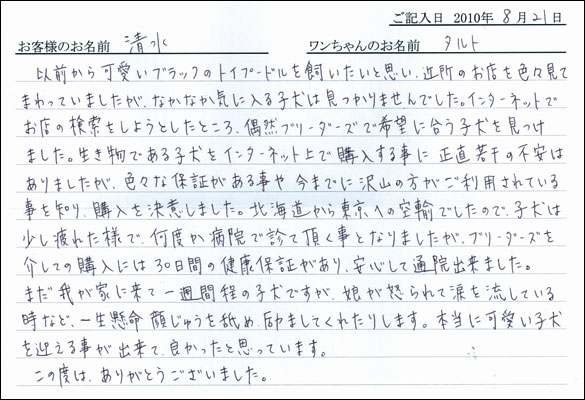 ご記入日 2010年 8月21日
お客様のお名前 清水 ワンちゃんのお名前 タルト
以前から可愛いブラックのトイプードルを飼いたいと思い、近所のお店を色々見て
まわっていましたが、なかなか気に入る子犬は見つかりませんでした。インターネットで
お店の検索をしようとしたところ、偶然ブリーダーズで希望に合う子犬を見つけ
ました。生き物である子犬をインターネット上で購入する事に正直若干の不安は
ありましたが、色々な保証がある事や今までに沢山の方がご利用されている
事を知り、購入を決意しました。北海道から東京への空輸でしたので、子犬は
少し疲れた様で、何度か病院で診て頂く事となりましたが、ブリーダーズを
介しての購入には30日間の健康保証があり、安心して通院出来ました。
まだ我が家に来て一週間程の子犬ですが、娘が怒られて涙を流している
時など、一生懸命顔じゅうを舐め、励ましてくれたりします。本当に可愛い子犬
を迎える事が出来て、良かったと思っています。
この度は、ありがとうございました。